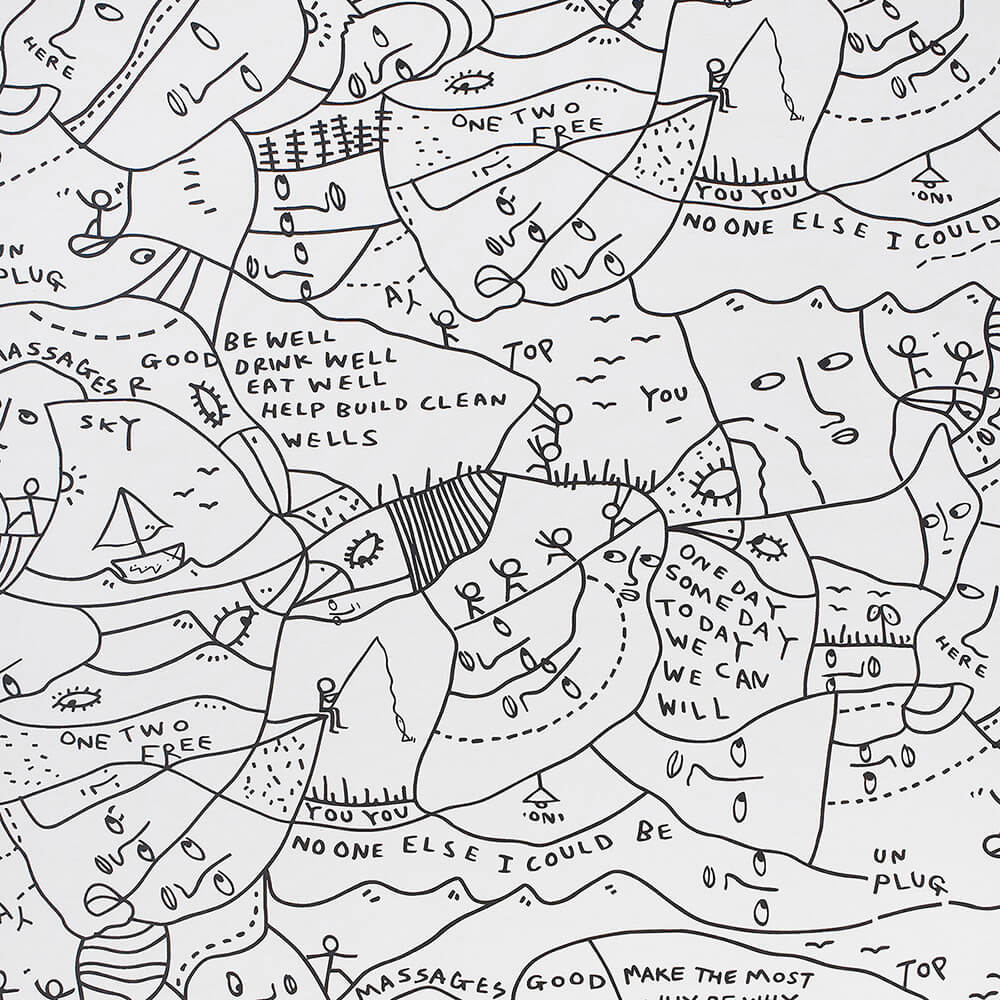 HERE
ONE TWO
FREE
YOU YOU
NO ONE ELSE I COULD
ON
UN
PLUG
AY
MASSAGES R
GOOD
BE WELL
DRINK WELL
EAT WELL
HELP BUILD CLEAN
WELLS
TOP
YOU
SKY
ONE DAY
SOME DAY
TO DAY
WE
WE CAN
WILL
HERE
ONE TWO
FREE
YOU YOU
NO ONE ELSE I COULD BE
ON
UN
PLUG
AY
MASSAGES
GOOD
MAKE THE MOST
TOP